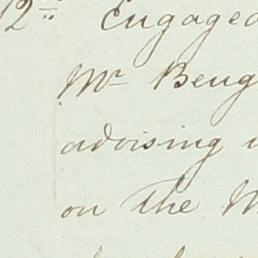 12th Engaged
Mr Beug
advising
on the M